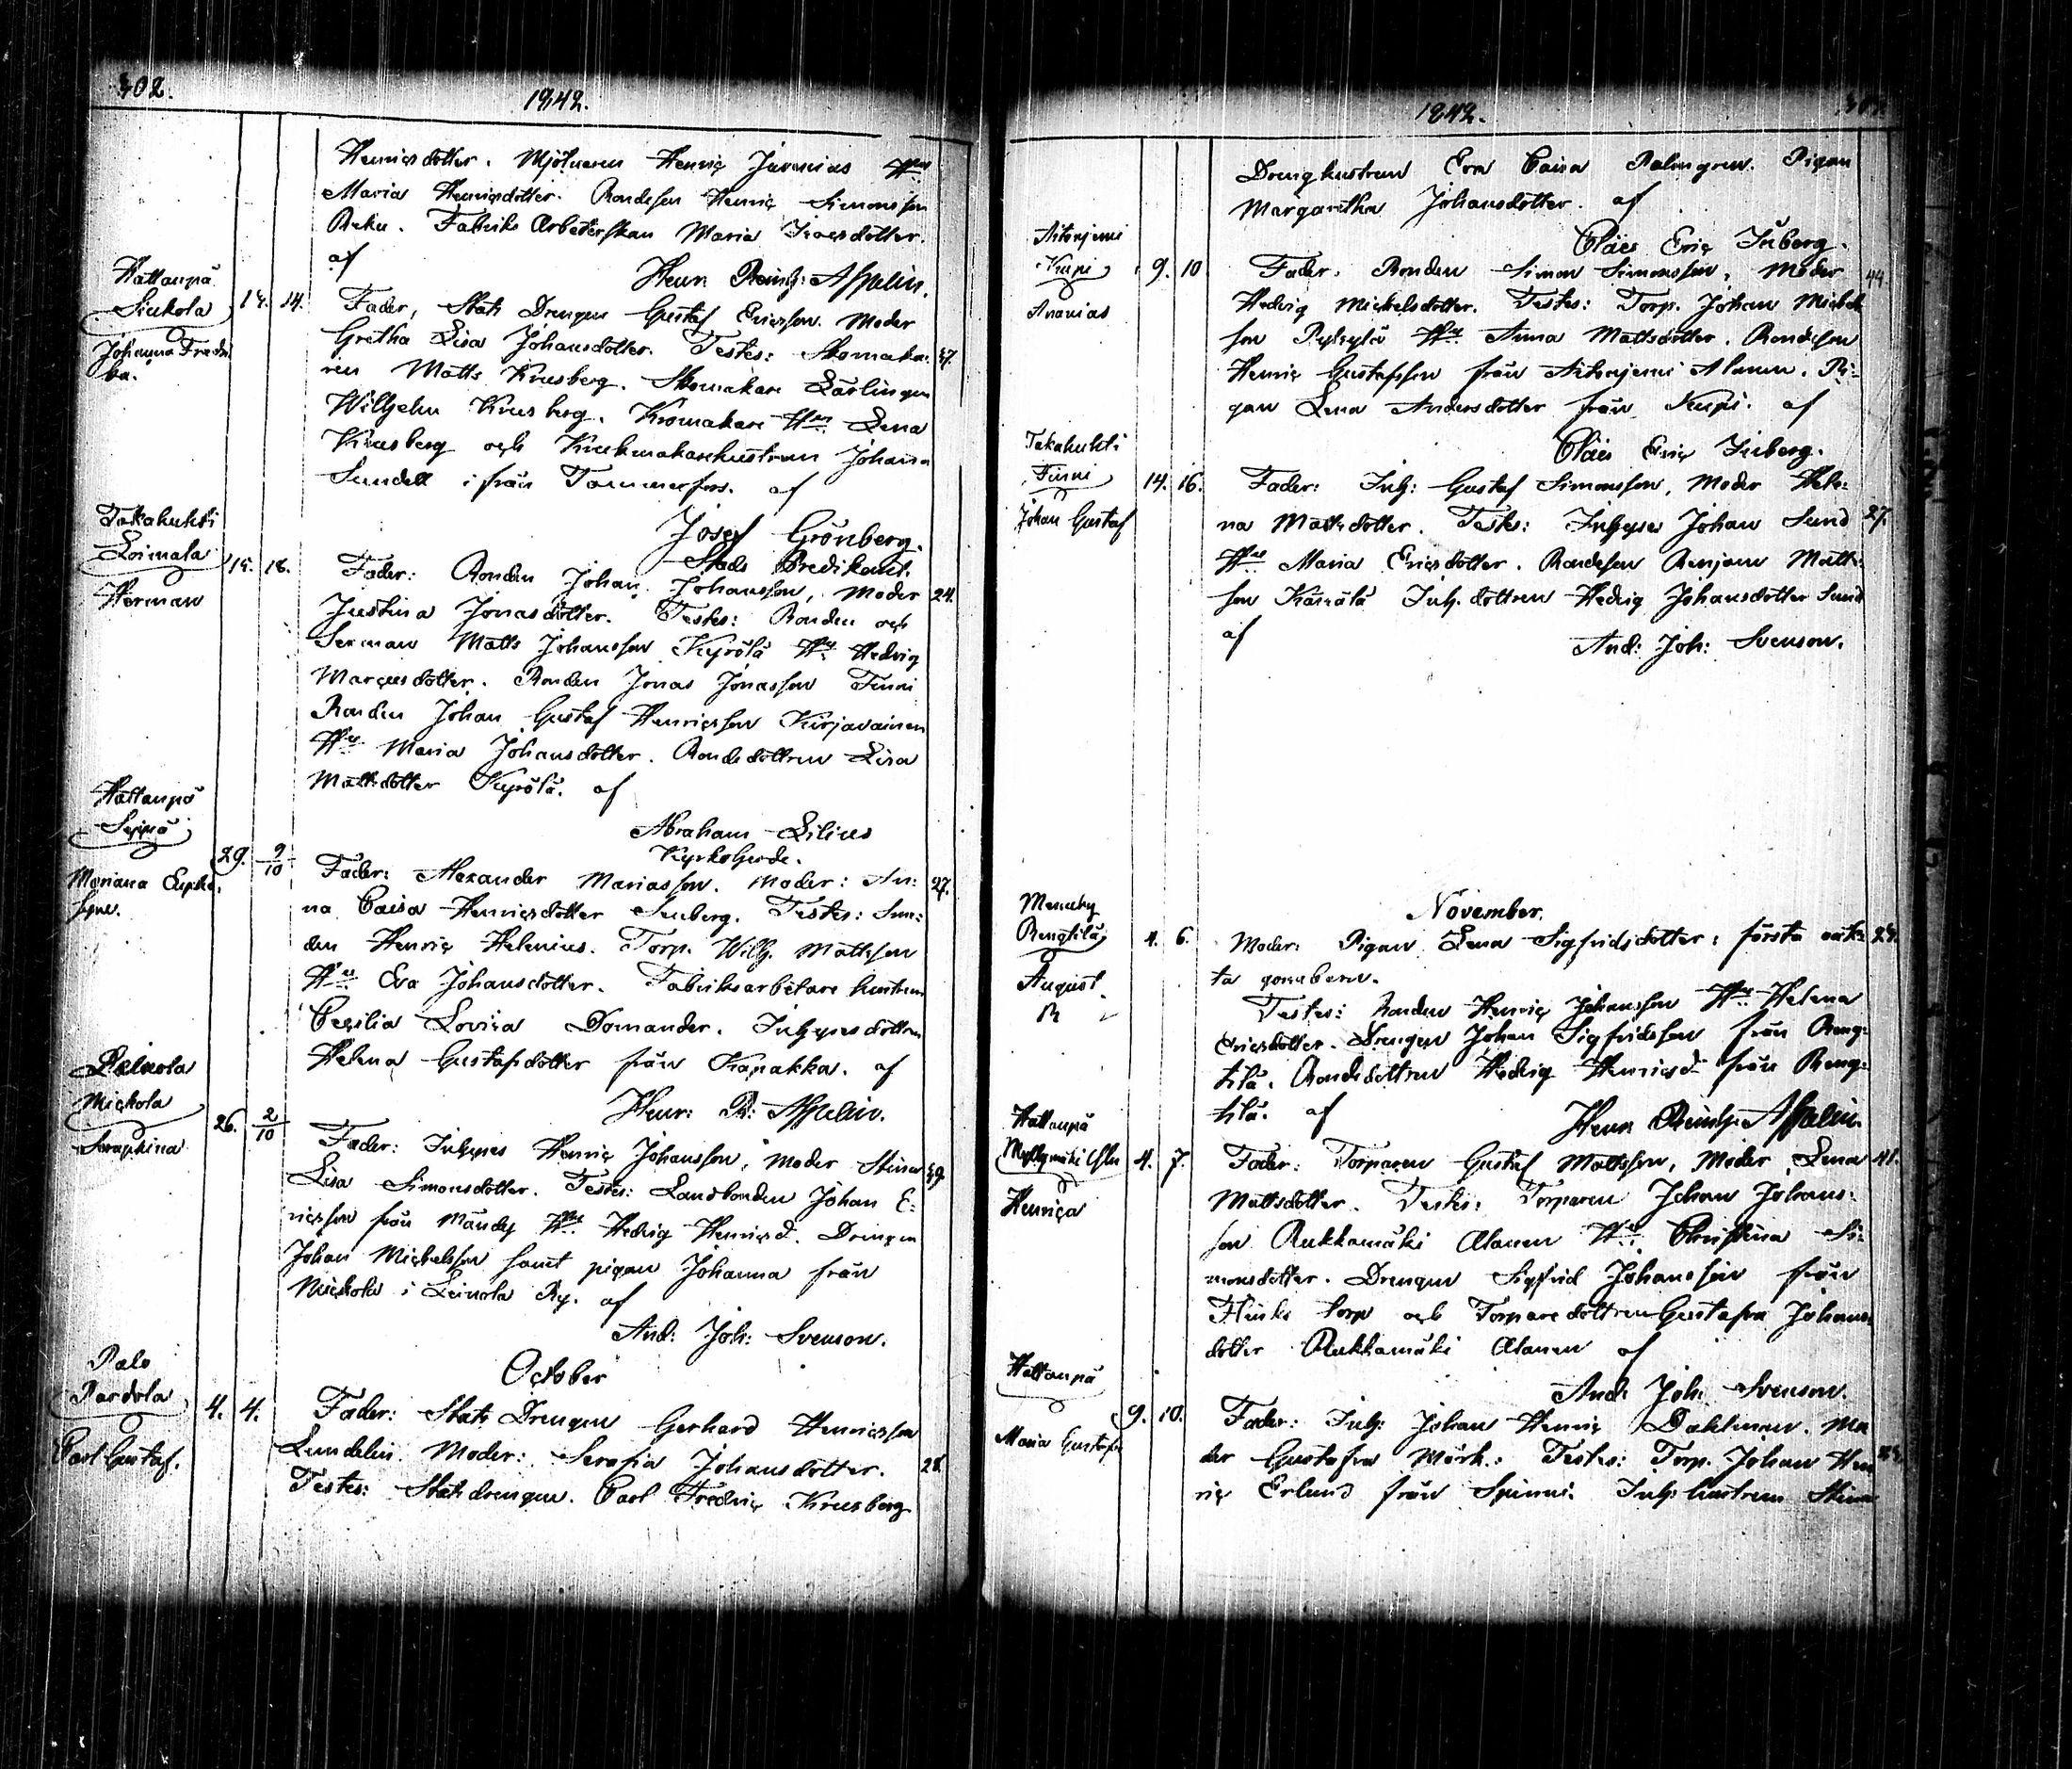 302.
1842.
Henricsdotter. Mjölnaren Henric Juvenius Hu
Maria Henricsdotter. Bondeson Henric Simonsson
Reku. Fabriks Arbeterskan Maria Isacsdotter.
af
Henr. Reinh: Aspelin.
Hattanpä
Sinkola 14.
Johanna Fredri
ka.
Fader, Stats Drengen Gustaf Ericsson. Moder
Gretha Lisa Johansdotter. Testes: Skomaka- 37.
ren Matts Krusberg. Skomakare Lärlingen
Wilhelm Krusberg. Kromakare Hu Lena
Krusberg och Krukmakarehustrun Johana
Sundell ifrån Tammerfors. af
Josef Grönberg.
Stads Predikant.
Takahuhti
Loimala 15. 18.
Herman
Fader: Bonden Johan Johansson, Moder 24.
Justina Jonasdotter. Testes: Bonden och
Sexman Matts Johansson Kyrölä Hu Hedvig
Marcusdotter. Bonden Jonas Jonasson Finni
Bonden Johan Gustaf Henricsson Kirjavainen
Hu Maria Johansdotter. Bondedottren Lisa
Mattsdotter Kyrölä. af
Abraham Lilius
Kyrkoherde.
Hattanpä
Seppä 29. 9/10
Mariana
Fader: Alexander Mariasson. Moder: An- 27.
na Caisa Henricsdotter Senberg. Testes: Sme-
den Henric Helenius. Torp. Wilh. Mattsson
Hu Eva Johansdotter. Fabriksarbetare hustrun
Cecilia Lovisa Domander. Inhysesdottren
Helena Gustafsdotter från Kapakka. af
Henr: R: Aspelin.
Leinola
Mickola 26. 2/10
Seraphina
Fader: Inhyses Henric Johansson, Moder Stina 39.
Lisa Simonsdotter. Testes: Landbonden Johan E-
ricsson från Mändy Hu Hedvig Henricsd. Drengen
Johan Michelsson samt pigan Johanna från
Mickola i Leinola By. af
And: Joh: Svenson.
October
Palo
Perdola 4. 4.
Carl Gustaf.
Fader: Stats Drengen Gerhard Henricsson
Lundelin Moder: Serafia Johansdotter. 28.
Testes: Statsdrengen. Carl Fredric Krusberg
1842.
Drenghustrun Eva Caisa Palmgren. Pigan
Margaretha Johansdotter. af
Claes Eric Inberg.
Aitonjemi
Kupi 9. 10
Ananias
Fader. Bonden Simon Simonsson, Moder 44
Hedvig Mickelsdotter. Testes: Torp. Johan Mickels
son Pyhylä Hu Anna Mattsdotter. Bondeson
Henric Gustafsson från Aitonjemi Alanen. Pi-
gan Lena Andersdotter från Kupi. af
Claes Eric Inberg.
Takahuhti
Finni 14. 16.
Johan Gustaf
Fader: Inh: Gustaf Simonsson, Moder Hele-
na Mattsdotter. Testes: Inhyses Johan Sund 27.
Hu Maria Ericsdotter. Bondeson Benjam Matts-
son Käerälä Inh. dottren Hedvig Johansdotter Sund
af
And: Joh: Svenson.
November.
Messuby
Pengtilä 4. 6.
August
Moder: Pigan Lena Sigfridsdotter; första oäk-
ta gossebarn.
Testes: Bonden Henric Johansson Hu Helena
Ericsdotter. Drengen Johan Sigfridsson från Peng-
tilä. Bondedottren Hedvig Henricsd från Peng-
tilä. af
Henr Reinh. Aspelin.
Hattanpä
Myllymäki 4. 7.
Henrica
Fader: Torparen Gustaf Mattsson, Moder Lena 41.
Mattsdotter. Testes: Torparen Johan Johans-
son Rukkamäki Alanen Hu Christina Si-
monsdotter. Drengen Sigfrid Johansson från
Flinks torp och Torparedottren Gustafva Johans
dotter Rukkamäki Alanen af
And: Joh: Svenson.
Hattanpä
9. 10.
Maria Gustafva
Fader: Inh: Johan Henric Dahlman. Mo
der Gustafva Mörk.: Testes: Torp. Johan Hen
ric Erlund från Spinni. Inh: hustrun Stina